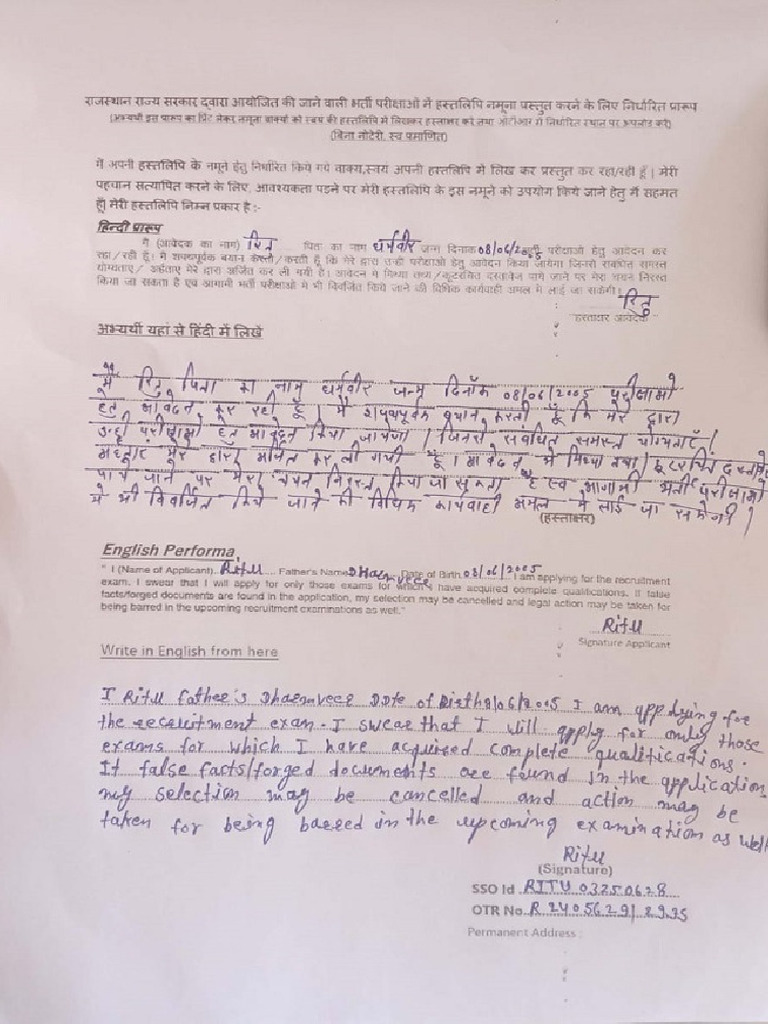 राजस्थान राज्य सरकार द्वारा आयोजित की जाने वाली भर्ती परीक्षाओं में हस्तलिपि नमूना प्रस्तुत करने के लिए निर्धारित प्रारूप
(अभ्यर्थी इस प्रारूप का प्रिंट लेकर नमूना वाक्यों को स्वयं की हस्तलिपि में लिखकर हस्ताक्षर करें तथा ओटीआर में निर्धारित स्थान पर अपलोड करें)
(बिना नोटेरी, स्व प्रमाणित)
मैं अपनी हस्तलिपि के नमूने हेतु निर्धारित किये गये वाक्य,स्वयं अपनी हस्तलिपि में लिख कर प्रस्तुत कर रहा/रही हूँ। मेरी
पहचान सत्यापित करने के लिए, आवश्यकता पडने पर मेरी हस्तलिपि के इस नमूने को उपयोग किये जाने हेतु मैं सहमत
हूँ। मेरी हस्तलिपि निम्न प्रकार है :-
हिन्दी प्रारूप
मैं (आवेदक का नाम) रितु पिता का नाम धर्मवीर जन्म दिनांक 08/06/2005 परीक्षाओं हेतु आवेदन कर
रहा/रही हूँ। मैं शपथपूर्वक बयान करता/करती हूँ कि मेरे द्वारा उन्हीं परीक्षाओं हेतु आवेदन किया जायेगा जिनसे संबंधित समस्त
योग्यताएं/ अर्हताएं मेरे द्वारा अर्जित कर ली गयी है। आवेदन में मिथ्या तथ्य/कूटरचित दस्तावेज पाये जाने पर मेरा चयन निरस्त
किया जा सकता है एवं आगामी भर्ती परीक्षाओं में भी विवर्जित किये जाने की विधिक कार्यवाही अमल में लाई जा सकेगी।
रितु
हस्ताक्षर आवेदक
अभ्यर्थी यहां से हिंदी में लिखें
मैं रितु पिता का नाम धर्मवीर जन्म दिनाँक 08/06/2005 परीक्षाओ
हेतु आवेदन कर रही हूँ। मैं शपथपूर्वक बयान करती हूँ कि मेरे द्वारा
उन्ही परीक्षाओ हेतु आवेदन किया जायेगा। जिनसे संबंधित समस्त योग्यताएँ/
मेरे द्वारा अर्जित कर ली गयी हूँ। आवेदन में मिथ्या तथ्य/ कूटरचित
पाये जाने पर मेरा चयन निरस्त किया जा सकता है एवं आगामी भर्ती परीक्षाओ
मे भी विवर्जित किये जाने की विधिक कार्यवाही अमल मे लाई जा सकेगी।
(हस्ताक्षर)
English Performa
" I (Name of Applicant) Ritu Father's Name Dharmveer Date of Birth 08/06/2005 I am applying for the recruitment
exam. I swear that I will apply for only those exams for which I have acquired complete qualifications. If false
facts/forged documents are found in the application, my selection may be cancelled and legal action may be taken for
being barred in the upcoming recruitment examinations as well."
Ritu
Signature Applicant
Write in English from here
I Ritu father's Dharmveer Date of Birth 8/06/2005 I am applying for
the recruitment exam. I swear that I will apply for only those
exams for which I have acquired complete qualifications.
If false facts/forged documents are found in the application,
my selection may be cancelled and action may be
taken for being barred in the upcoming examination as well
Ritu
(Signature)
SSO Id RITU 03250678
OTR No. R 240562912995
Permanent Address :